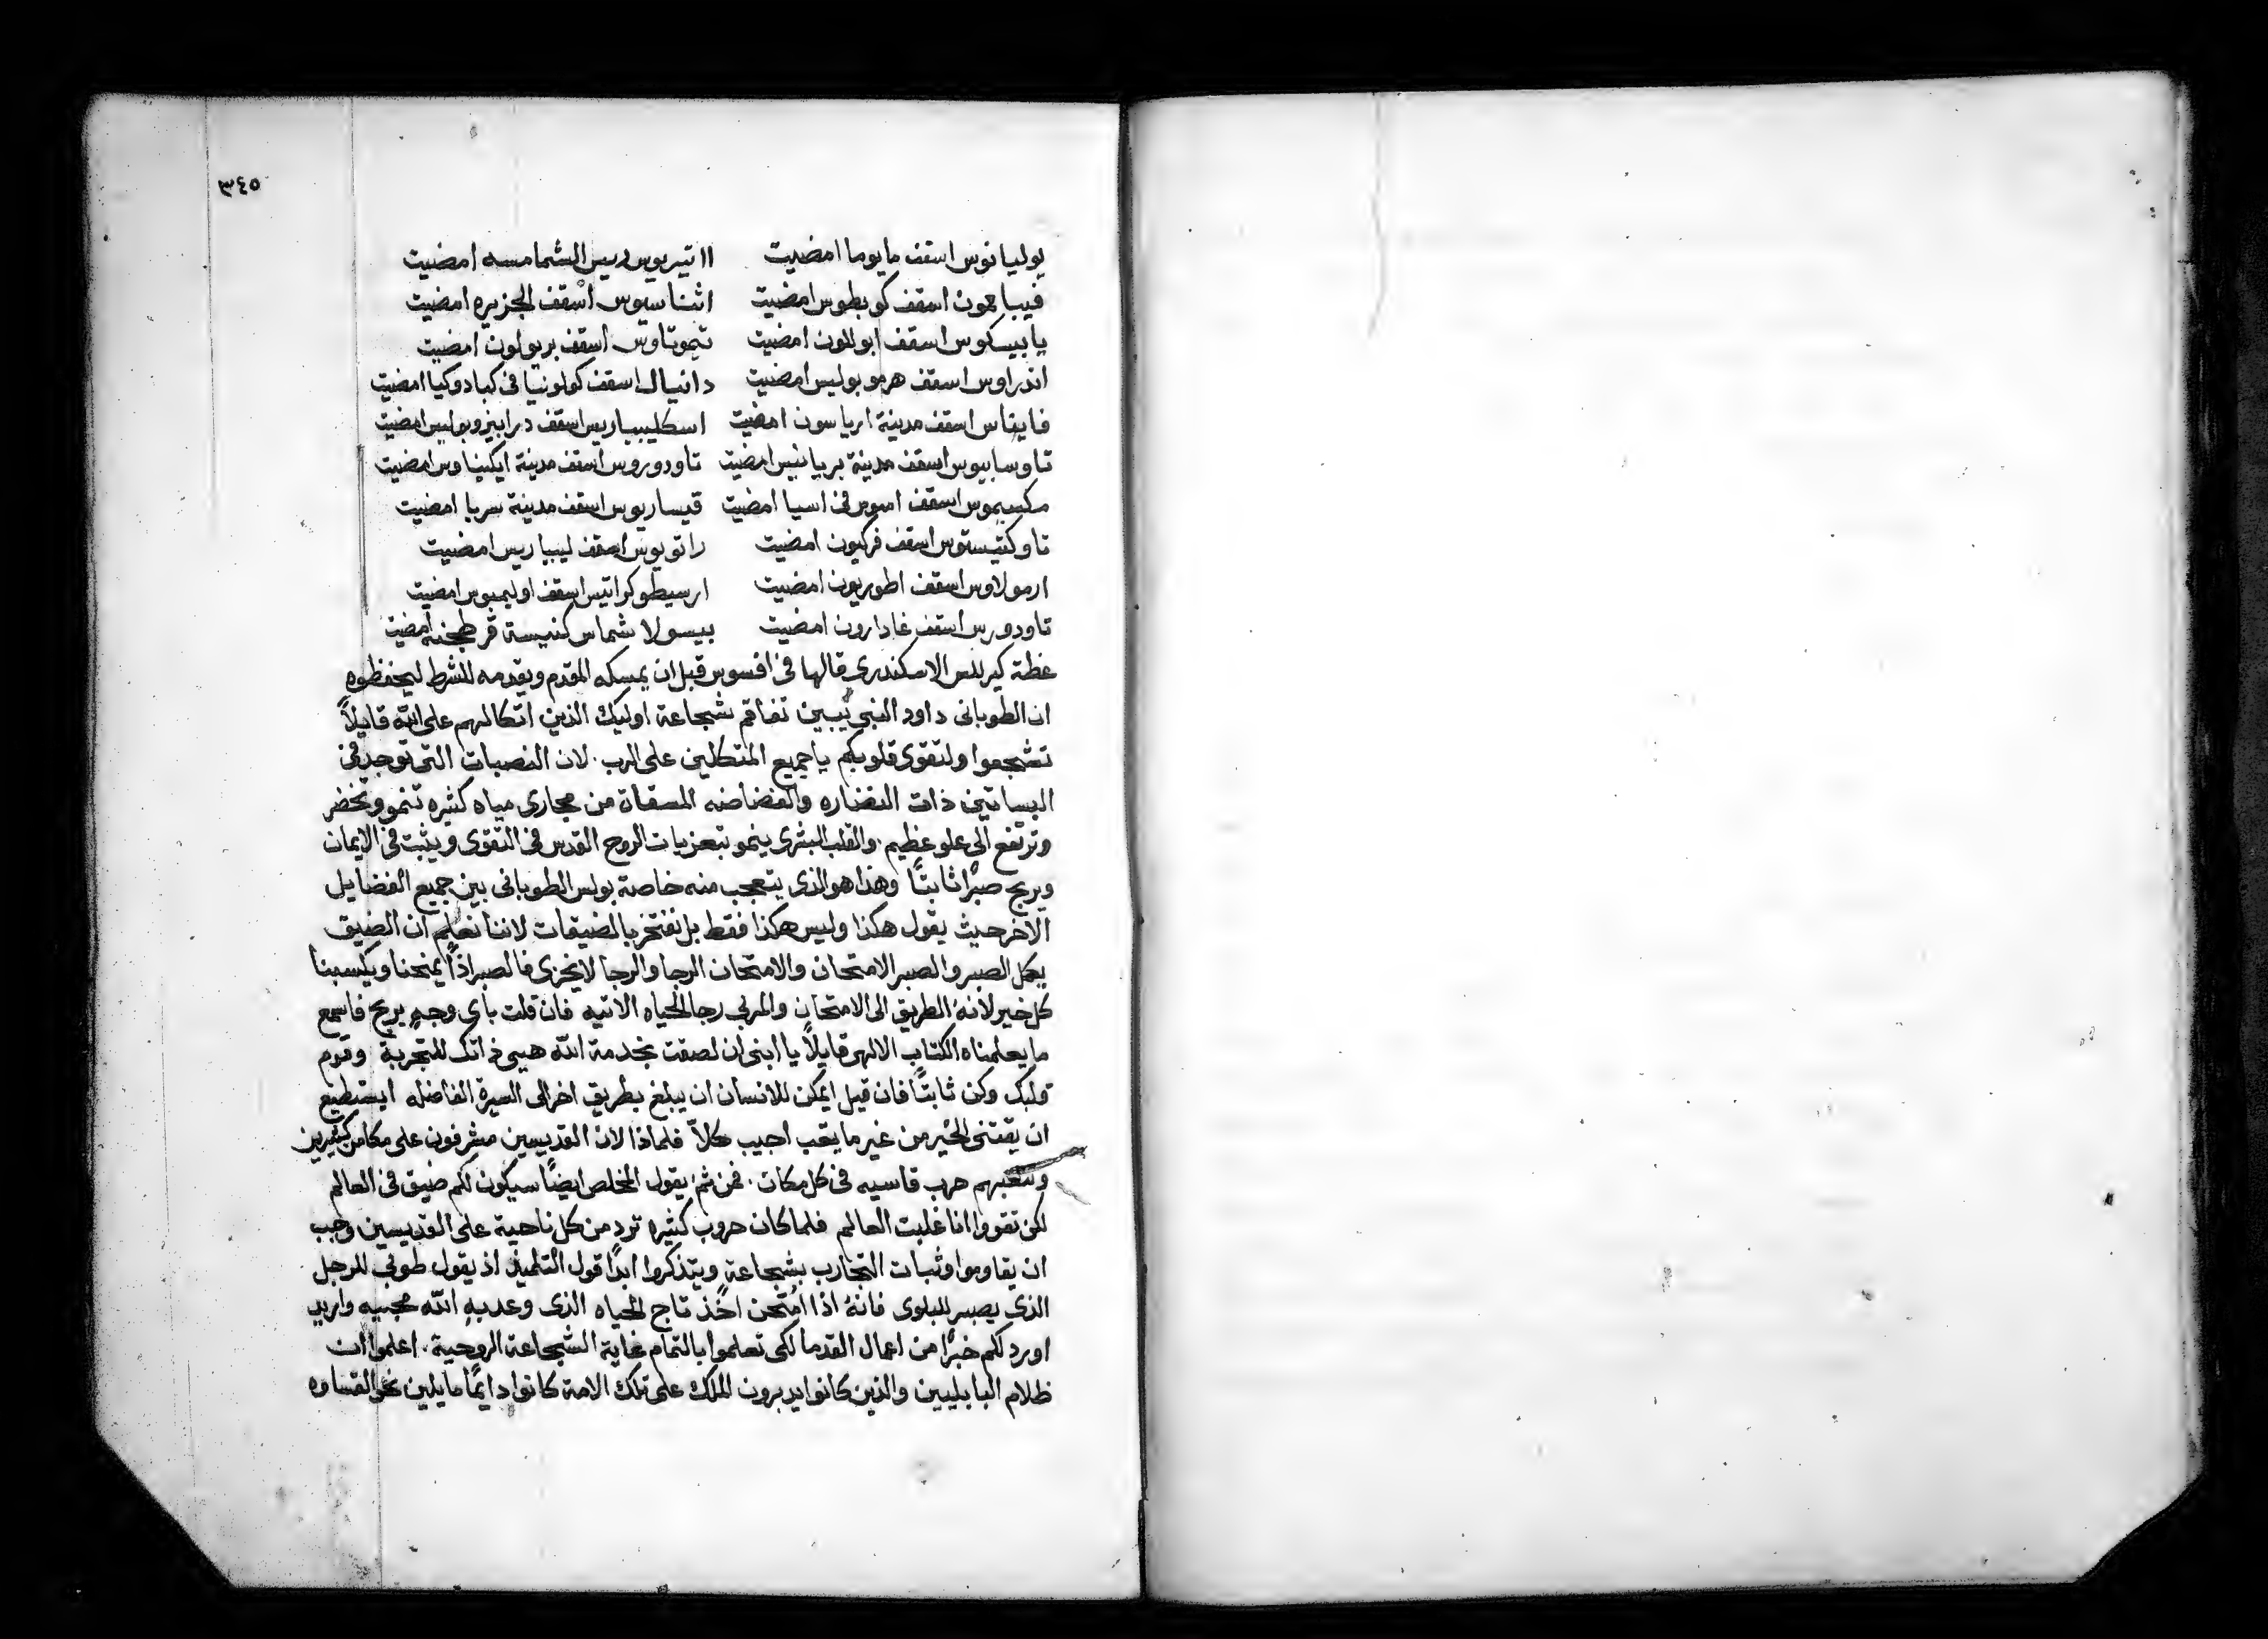 ٣٤٥
يوليانوس اسقف مايوما امضيت اا تيريوس رييس الشمامسه امضيت
فيبامون اسقف كوبطوس امضيت اثناسيوس اسقف الجزيره امضيت
يابيسكوس اسقف ابوللون امضيت تيموتاوس اسقف بريولون امضيت
اندراوس اسقف هرموبوليس امضيت دانيال اسقف كولونيا في كبادوكيا امضيت
فايقاس اسقف مدينة ارياسون امضيت اسكليبياريس اسقف درابيزوبوليس امضيت
تاوسابيوس اسقف مدينة بريانيس امضيت تاودوروس اسقف مدينة ايكيناوس امضيت
مكسيموس اسقف اسوس في اسيا امضيت قيساريوس اسقف مدينة سربا امضيت
تاوكتيستوس اسقف فركيون امضيت راتويوس اسقف ليبياريس امضيت
ارمولاوس اسقف اطوريون امضيت ارسيطوكراتيس اسقف اوليمبوس امضيت
تاودورس اسقف غادارون امضيت بيسولا شماس كنيسة قرطجنه امضيت
عظة كيرللس الاسكندرى قالها في افسوس قبل ان يمسكه المقدم ويقدمه للشرط ليحفظوه
ان الطوبانى داود النبي يبين تفاقم شجاعة اوليك الذين اتكالهم على الله قايلاً
تشجعوا ولتقوى قلوبكم يا جميع المتكلين على الرب. لان النصبات التى توجد في
البساتين ذات النضاره والغضاضه المسقاة من مجارى مياه كثيره تنمو وتخضر
وترتفع الى علو عظيم. والقلب البشرى ينمو بتعزيات الروح القدس في التقوى ويثبت في الايمان
ويربح صبراً ثابتاً وهذا هو الذى يتعجب منه خاصة بولس الطوبانى بين جميع الفضايل
الاخر حيث يقول هكذا وليس هكذا فقط بل نفتخر بالضيقات لاننا نعلم ان الضيق
يكمل الصبر والصبر الامتحان والامتحان الرجا والرجا لا يخزى فالصبر اذاً يمنحنا ويكسبنا
كل خير لانهُ الطريق الى الامتحان والمربي رجا الحياه الاتيه فان قلت باى وجهٍ يربح فاسمع
ما يعلمناه الكتاب الالهى قايلاً يا ابنى ان لصقت بخدمة الله هيى ذاتك للتجربة وقوم
قلبك وكن ثابتاً فان قيل ايمكن للانسان ان يبلغ بطريق اخر الى السيرة الفاضله ايستطيع
ان يقتنى الخير من غير ما يتعب اجيب كلاّ فلماذا لان القديسين مشرفون على مكامن كثيرين
وتتعبهم حرب قاسيه في كل مكان. فمن ثم يقول المخلص ايضاً سيكون لكم ضيق في العالم
لكن تقووا انا غلبت العالم فلما كان حروب كثيره ترد من كل ناحية على القديسين وجب
ان يقاوموا وثبات التجارب بشجاعةٍ ويتذكروا ابداً قول التلميذ اذ يقول طوبي للرجل
الذى يصبر للبلوى فانهُ اذا امُتحن اخذ تاج الحياه الذى وعد به الله محبيه واريد
اورد لكم خبراً من اعمال القدما لكى تعلموا بالتمام غاية الشجاعة الروحية. اعلموا ان
ظلام البابليين والذين كانوا يدبرون الملك على تلك الامة كانوا دايماً مايلين نحو القساوه